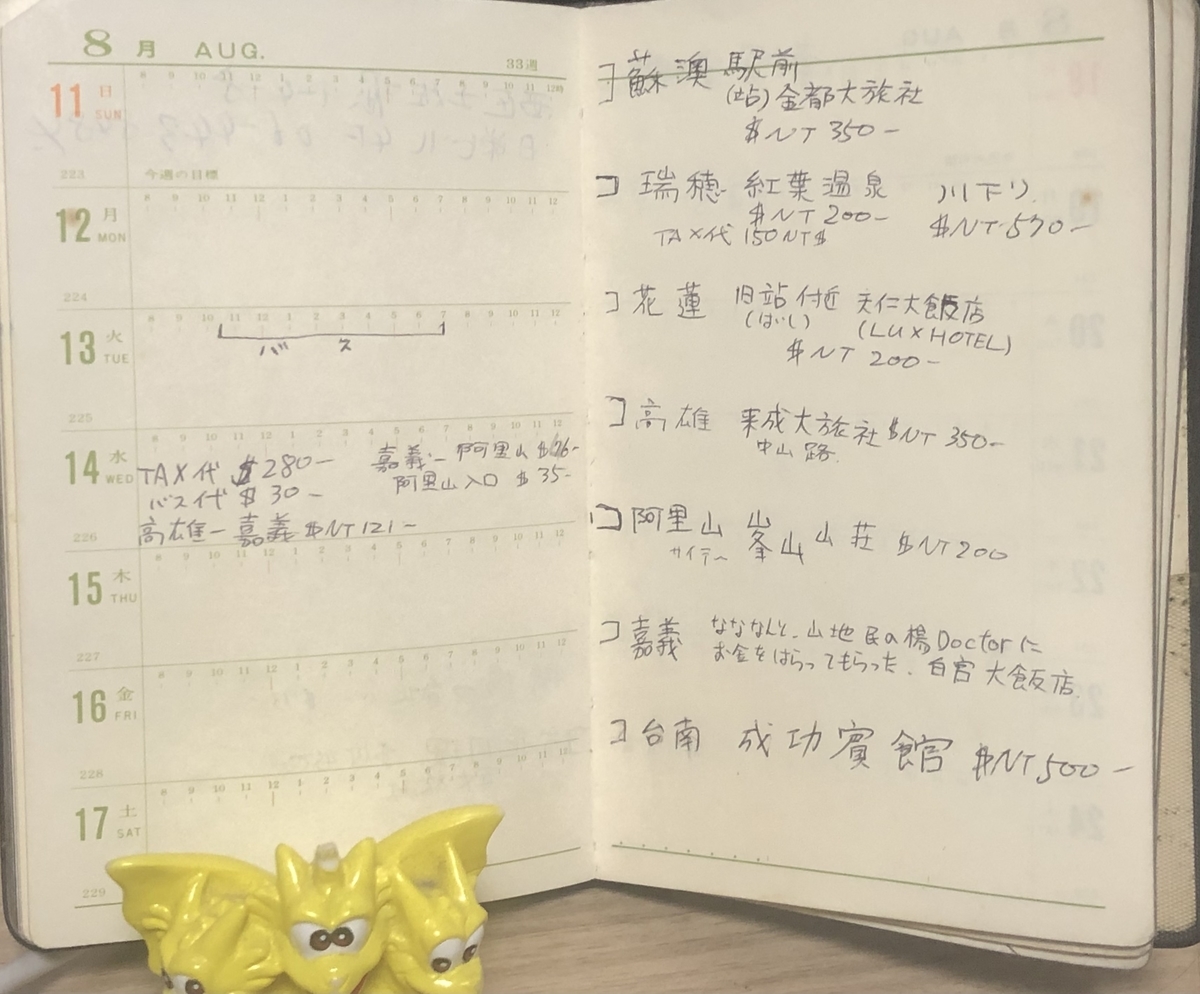 8月 AUG.
33週
8 9 10 11 12 1 2 3 4 5 6 7 8 9 10 11 12時
11 日 SUN
223 今週の目標
8 9 10 11 12 1 2 3 4 5 6 7 8 9 10 11 12
12 月 MON
224
8 9 10 11 12 1 2 3 4 5 6 7 8 9 10 11 12
13 火 TUE
バス
225
8 9 10 11 12 1 2 3 4 5 6 7 8 9 10 11 12
14 水 WED
TAX代 $280-
嘉義-阿里山
バス代 $30-
阿里山入口 $35-
226
高雄-嘉義 $NT121-
8 9 10 11 12 1 2 3 4 5 6 7 8 9 10 11 12
15 木 THU
227
8 9 10 11 12 1 2 3 4 5 6 7 8 9 10 11 12
16 金 FRI
228
8 9 10 11 12 1 2 3 4 5 6 7 8 9 10 11 12
17 土 SAT
229
コ蘇澳 駅前
(站)金都大旅社
$NT 350-
コ 瑞穂 紅葉温泉 川下り
$NT 200- $NT 570-
TAX代 150NT$
コ花蓮 旧站付近 天仁大飯店
(ばし) (LUX HOTEL)
$NT 200-
コ高雄 来成大旅社 $NT 350-
中山路
コ阿里山 峯山山荘 $NT200
コ嘉義 なななんと、山地民の楊Doctorに
お金をはらってもらった。白宮大飯店
コ台南 成功賓館 $NT500-